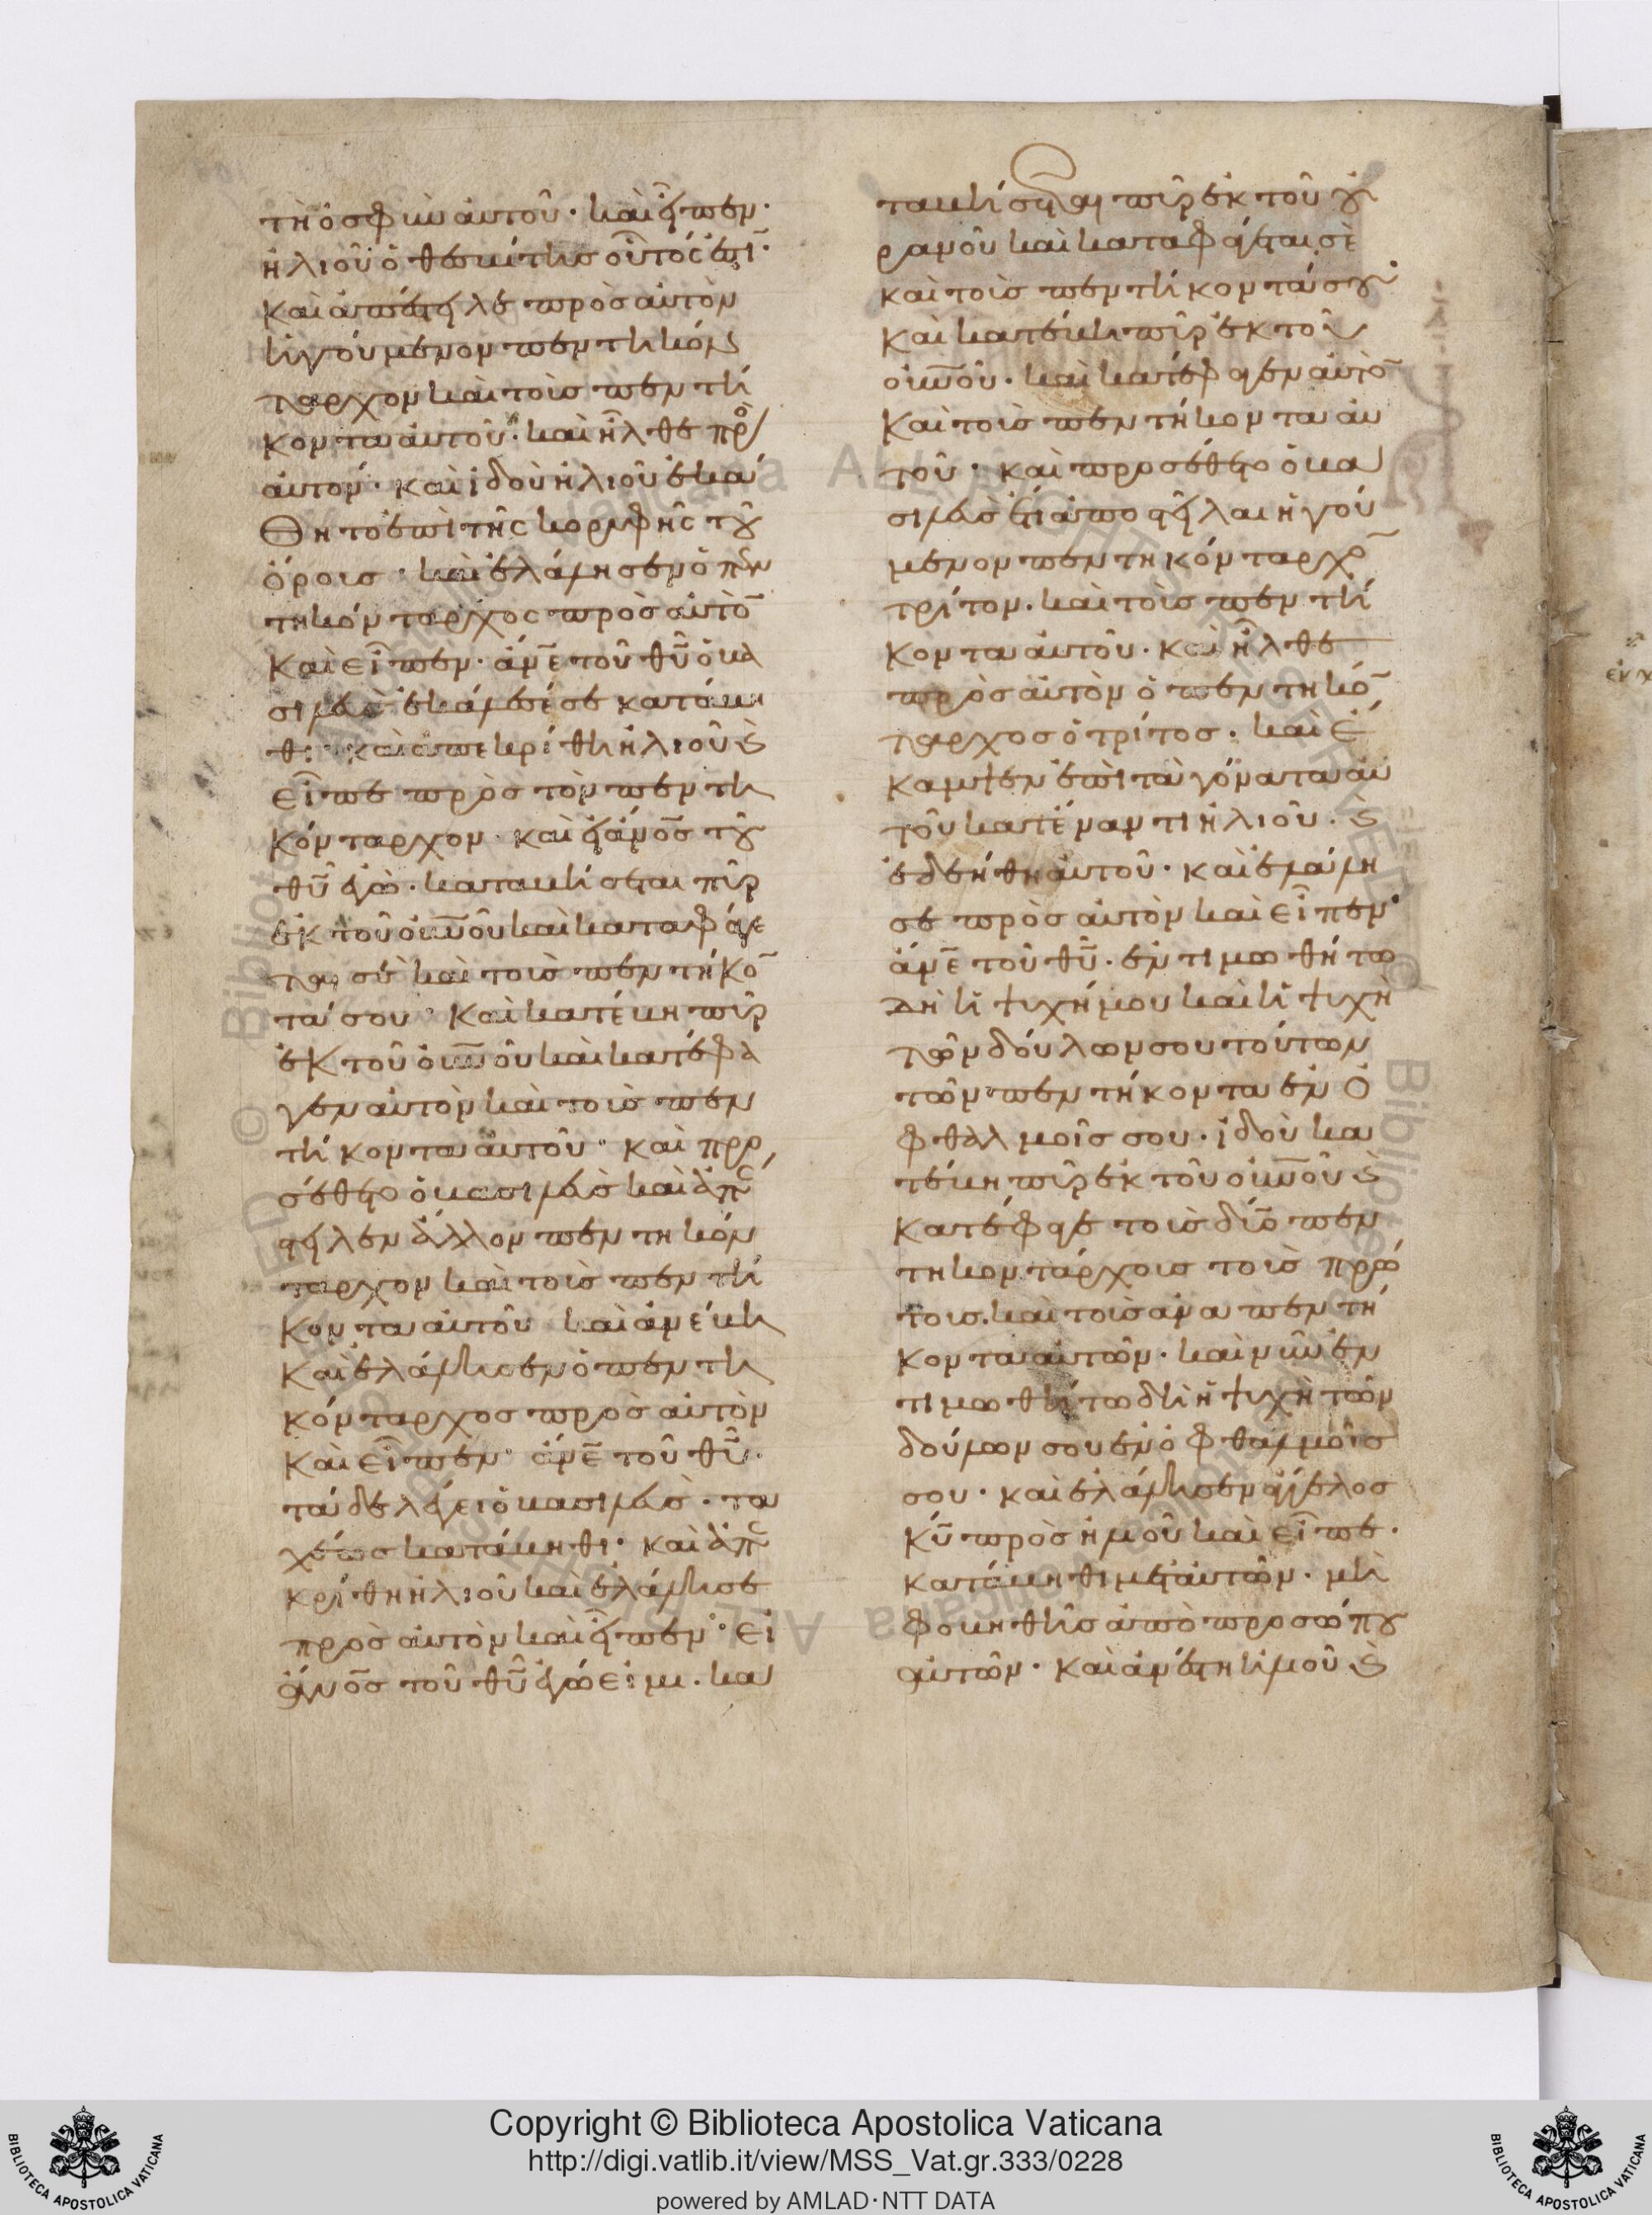 τὴ ὀσφὺν αὐτοῦ· καὶ εἶπεν·
ἠλιοὺ ὁ θεσβίτης οὗτός ἐστι·
καὶ ἀπέστειλε πρὸς αὐτὸν
ἡγούμενον πεντηκόν
ταρχον καὶ τοὺς πεντή
κοντα αὐτοῦ· καὶ ἦλθε πρὸς
αὐτόν· καὶ ἰδοὺ ἠλιοῦ ἐκά
θητο ἐπὶ τῆς κορυφῆς τοῦ
ὄρους· καὶ ἐλάλησεν ὁ πεν
τηκόνταρχος πρὸς αὐτὸ̄
καὶ εἶπεν· ἄνε̄ τοῦ θῦ ὁ βα
σιλεὺς ἐκάλεσέ σε κατάβη
θι· καὶ ἀπεκρίθη ἠλιοῦ ϗ
εἶπε πρὸς τὸν πεντη
κόνταρχον· καὶ εἰ ἄνο̄ς τοῦ
θῦ ἐγὼ· καταβήσεται πῦρ
ἐκ τοῦ οὐνοῦ καὶ καταφάγε
ται σὲ καὶ τοὺς πεντήκο̄
τά σου· καὶ κατέβη πῦρ
ἐκ τοῦ οὐνοῦ καὶ κατέφα
γεν αὐτὸν καὶ τοὺς πεν
τήκοντα αὐτοῦ· καὶ προ
σέθετο ὁ βασιλεὺς καὶ ἀπέ
στειλεν ἄλλον πεντηκόν
ταρχον καὶ τοὺς πεντή
κοντα αὐτοῦ καὶ ἀνέβη
καὶ ἐλάλησεν ὁ πεντη
κόνταρχος πρὸς αὐτὸν
καὶ εἶπεν· ἄνε̄ τοῦ θῦ·
τάδε λέγει ὁ βασιλεὺς· τα
χέως κατάβηθι· καὶ ἀπε
κρίθη ἠλιοῦ καὶ ἐλάλησε
πρὸς αὐτὸν καὶ εἶπεν· εἰ
ἄνο̄ς τοῦ θῦ ἐγώ εἰμι· κα
ταβήσεται πῦρ ἐκ τοῦ οὐ
ρανοῦ καὶ καταφάγεται σὲ
καὶ τοὺς πεντήκοντά σου·
καὶ κατέβη πῦρ ἐκ τοῦ
οὐνοῦ· καὶ κατέφαγεν αὐτὸ̄
καὶ τοὺς πεντήκοντα αὐ
τοῦ· καὶ προσέθετο ὁ βα
σιλεὺς ἔτι ἀποστεῖλαι ἡγού
μενον πεντηκόνταρχο̄
τρίτον· καὶ τοὺς πεντή
κοντα αὐτοῦ· καὶ ἦλθε
πρὸς αὐτὸν ὁ πεντηκό̄
ταρχος ὁ τρίτος· καὶ ἔ
καμψεν ἐπὶ τὰ γόνατα αὐ
τοῦ κατέναντι ἠλιοῦ· ϗ
ἐδεήθη αὐτοῦ· καὶ ἐλάλη
σε πρὸς αὐτὸν καὶ εἶπεν·
ἄνε̄ τοῦ θῦ· ἐντιμωθήτω
δὴ ἡ ψυχή μου καὶ ἡ ψυχὴ
τῶν δούλων σου τούτων
τῶν πεντήκοντα ἐν ὀ
φθαλμοῖς σου· ἰδοὺ κα
τέβη πῦρ ἐκ τοῦ οὐνοῦ ϗ
κατέφαγε τοὺς δύο πεν
τηκοντάρχους τοὺς πρώ
τους· καὶ τοὺς ἀνα πεντή
κοντα αὐτῶν· καὶ νῦν ἐν
τιμωθήτω δὴ ἡ ψυχὴ τῶν
δούλων σου ἐν ὀφθαλμοῖς
σου· καὶ ἐλάλησεν ἄγγελος
κῦ πρὸς ἠλιοῦ καὶ εἶπε·
κατάβηθι μετ αὐτῶν· μὴ
φοβηθῆς ἀπὸ προσώπου
αὐτῶν· καὶ ἀνέστη ἠλιοῦ ϗ
Copyright © Biblioteca Apostolica Vaticana
http://digi.vatlib.it/view/MSS_Vat.gr.333/0228
powered by AMLAD·NTT DATA